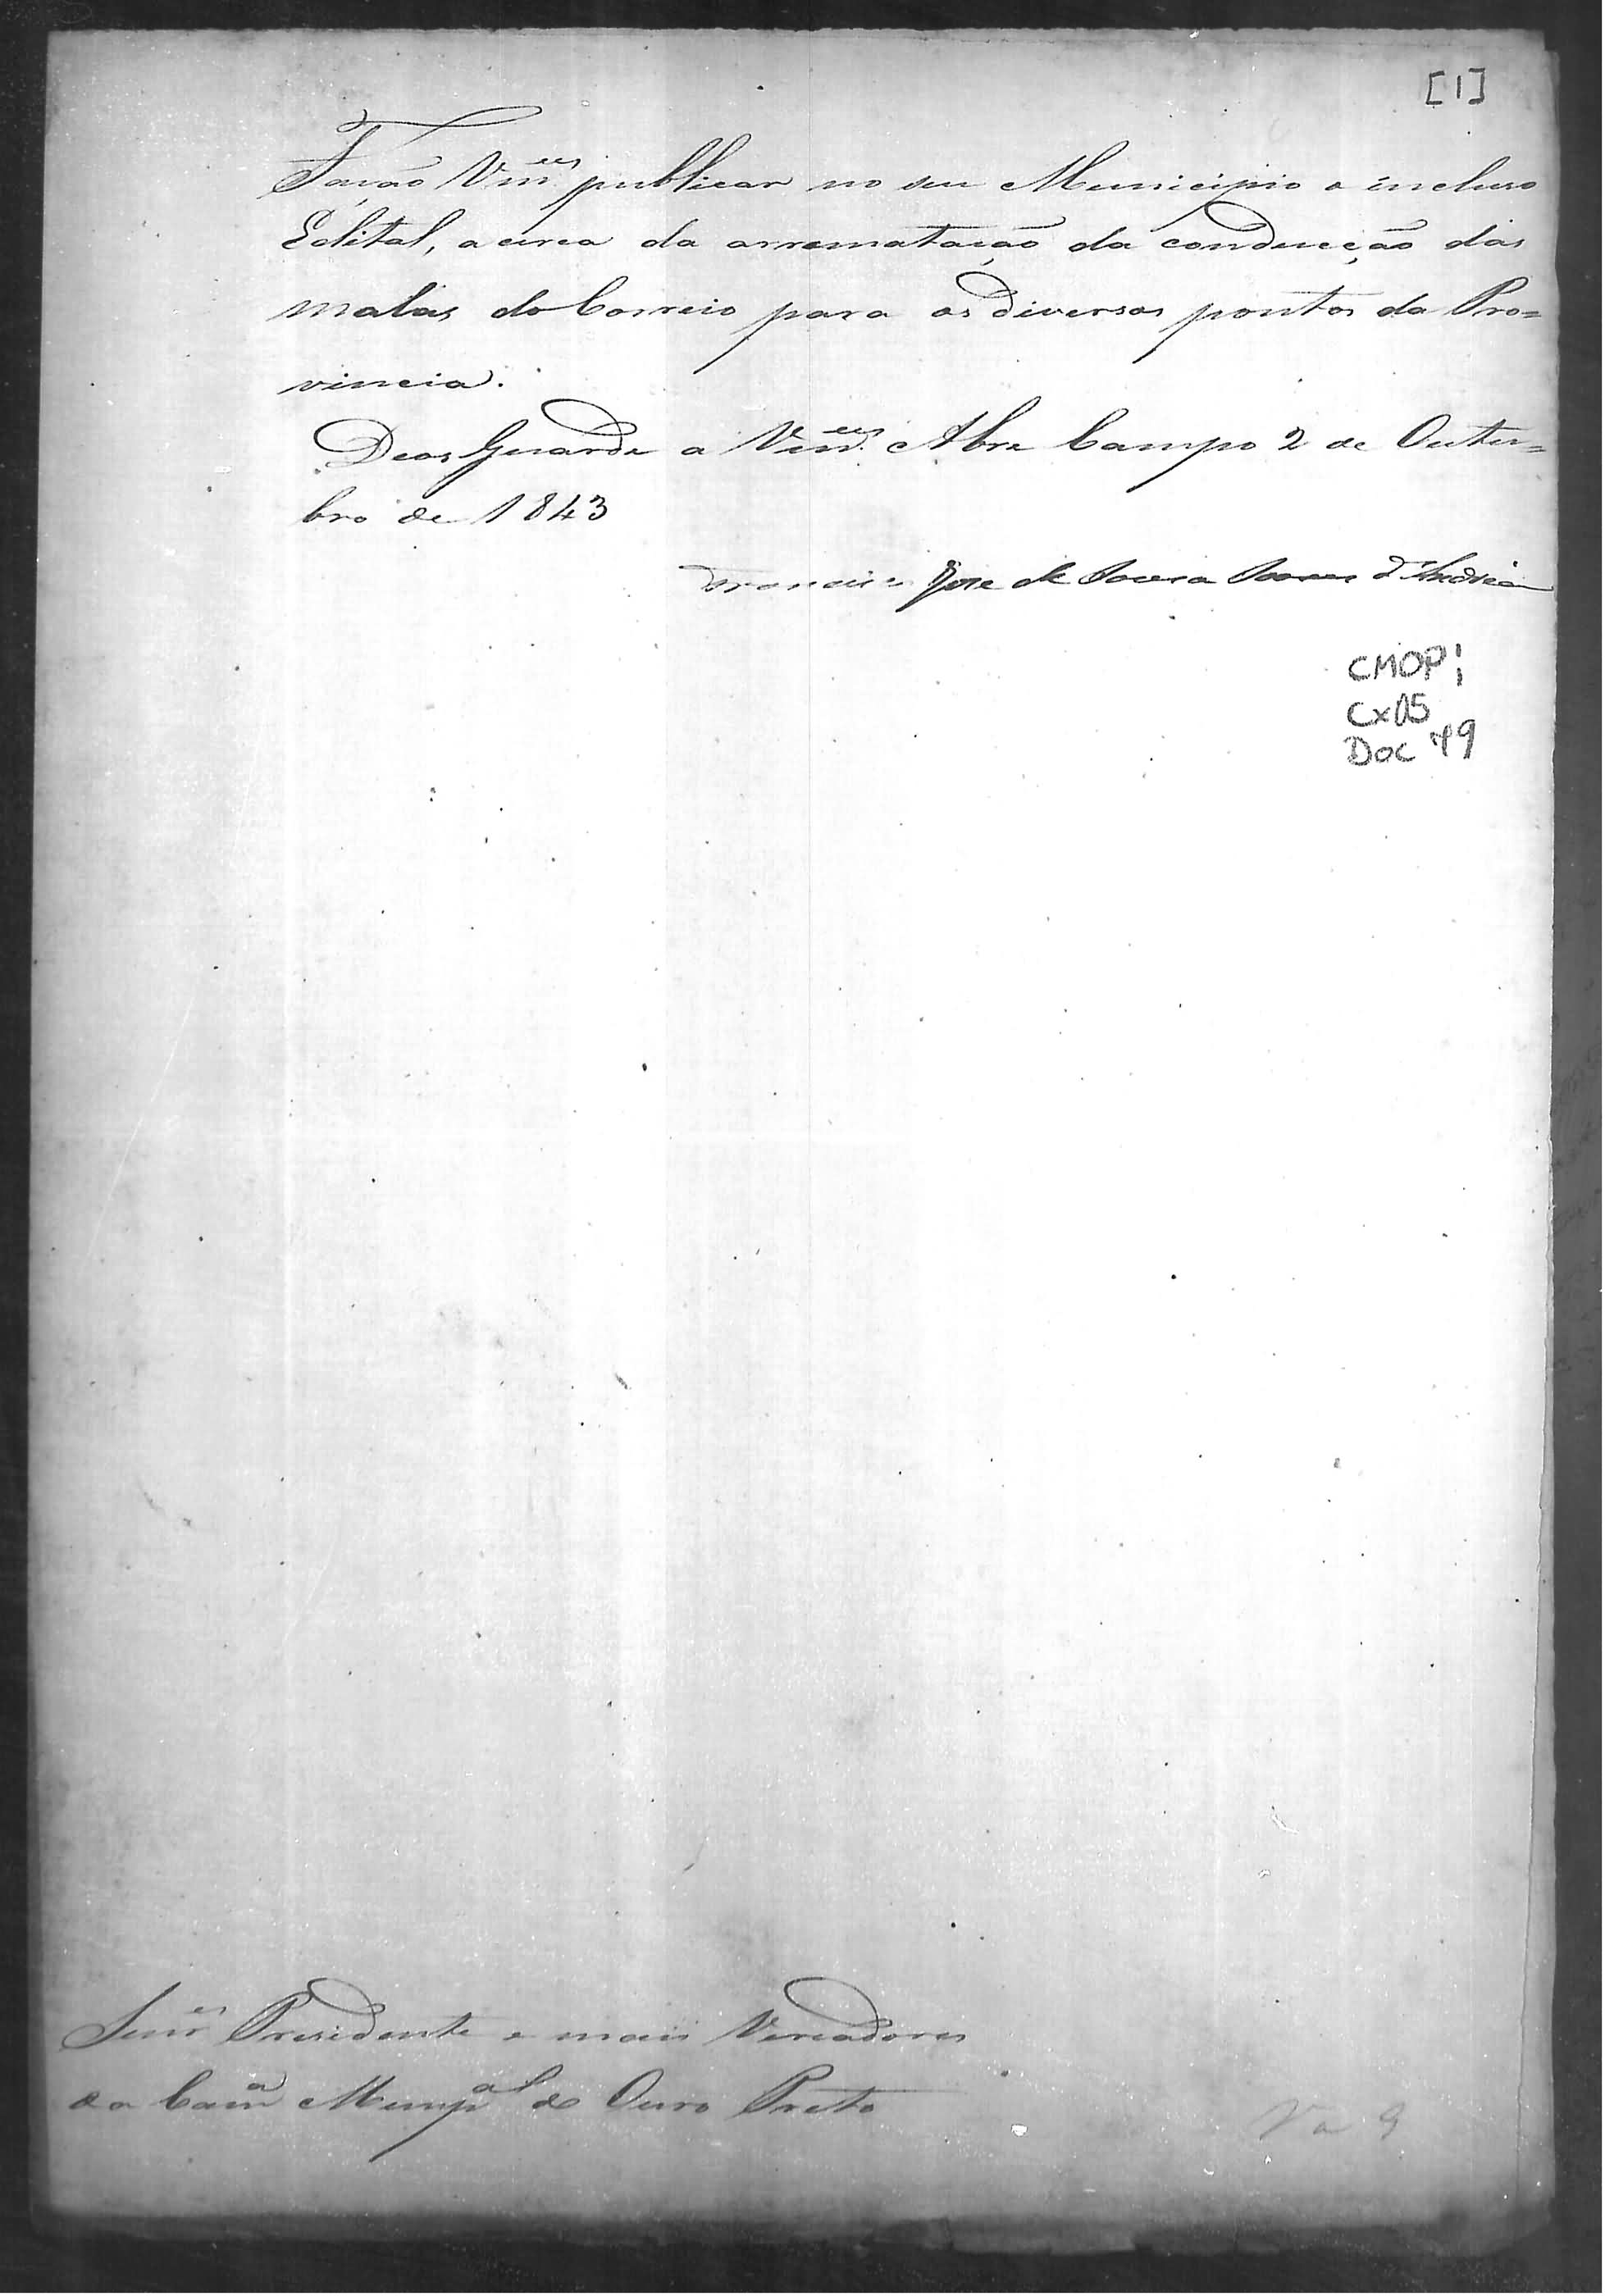 [1]
Fação Vm.ces publicar no seu Municipio o incluso
Edital, acerca da arrematação da conducção das
malas do Correio para os diversos pontos da Pro=
vincia.
Deos Guarde a Vm.ces Abre Campo 2 de Outu=
bro de 1843
Francisco Jose de Souza Soares d'Andrea
CMOP¹
Cx05
Doc 49
Senr.es Presidente e mais Vereadores
da Cam.a Munp.al do Ouro Preto